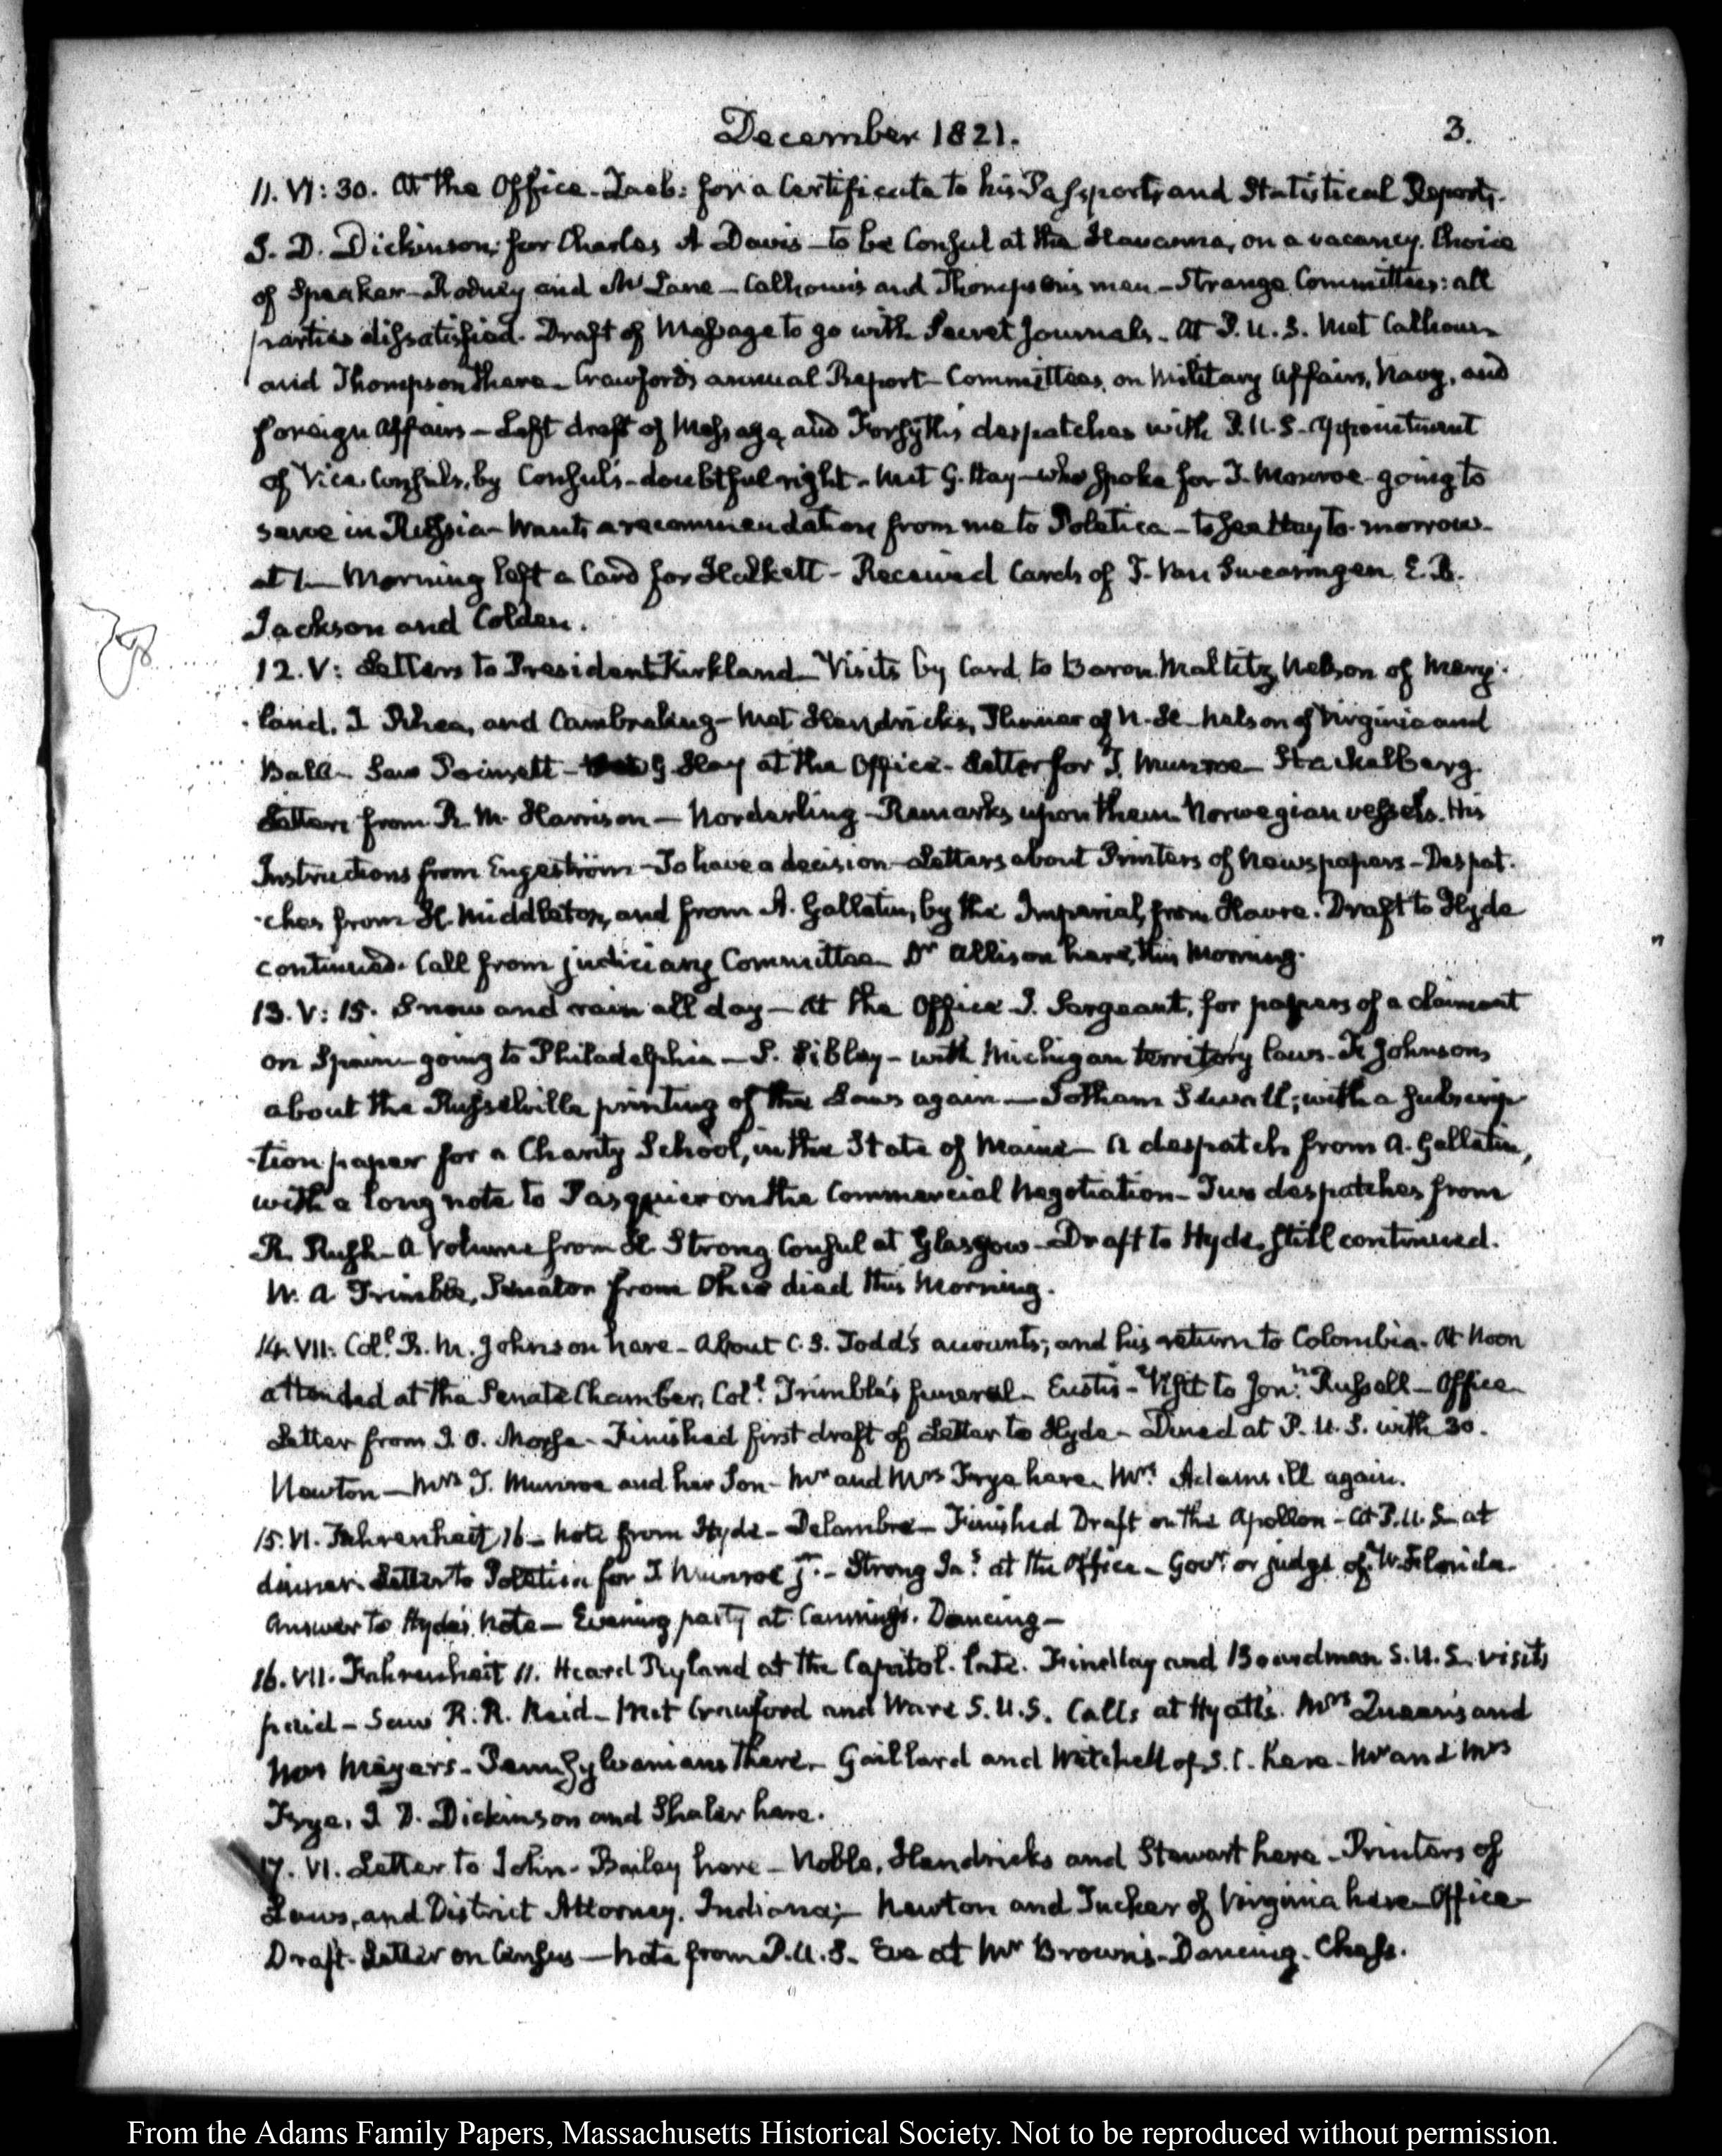 December 1821.
3.
11. VI: 30. At the Office. for a Certificate to his Passport, and Statistical Reports.
J. D. Dickinson; for Charles A Davis — to be Consul at the Havanna, on a vacancy. Choice
of Speaker — Rodney and McLane — Calhoun's and Thompson's men — Strange Committees: all
parties dissatisfied. Draft of Message to go with Secret Journals. At P.U.S. Met Calhoun
and Thompson there — Crawford's annual Report — Committees, on Military Affairs, Navy, and
foreign Affairs — Left draft of Message, and Forsyth's despatches with P.U.S. Appointment
of Vice Consuls, by Consuls — doubtful right — Met G. Hay — who spoke for J. Monroe going to
serve in Russia — Wants a recommendation from me to Poletica — to see Hay to-morrow
at 1 — Morning left a Card for Halkett — Received Cards of T. Van Swearingen, E. B.
Jackson and Colden.
12. V: Letters to President Kirkland — Visits by Card to Baron Maltitz, Nelson of Mary-
land, J Rhea, and Cambreling — Met Hendricks, of N. H. Nelson of Virginia and
Ball — Saw Poinsett — G Hay at the Office — Letter for J. Munroe — Stackelberg
Letters from R. M. Harrison — Norderling — Remarks upon them Norwegian vessels. His
Instructions from Engeström — To have a decision — Letters about Printers of Newspapers — Despat-
-ches from H. Middleton, and from A. Gallatin, by the Imperial, from Havre. Draft to Hyde
continued. Call from judiciary Committee — Dr Allison here, this Morning.
13. V: 15. Snow and rain all day — At the Office J. Sergeant, for papers of a claimant
on Spain — going to Philadelphia — S. Sibley — with Michigan territory laws. Johnson,
about the Russelville printing of the Laws again — Jotham Sewall; with a subscrip-
-tion paper for a Charity School, in the State of Maine — A despatch from A. Gallatin,
with a long note to Pasquier on the Commercial Negotiation — Two despatches from
R. Rush — A Volume from H. Strong Consul at Glasgow — Draft to Hyde, still continued.
W. A Trimble, Senator from Ohio died this Morning.
14. VII: Col.l R. M. Johnson here — About C. S. Todd's accounts; and his return to Colombia. At Noon
attended at the Senate Chamber, Col.l Trimble's funeral — Eustis — Visit to Jon.n Russell — Office
Letter from I. O. — Finished first draft of Letter to Hyde — Dined at P.U.S. with 30.
Newton — Mrs J. Munroe and her Son — Mr and Mrs Frye here. Mrs Adams ill again.
15. VI. Fahrenheit 16 — Note from Hyde — Delambre — Finished Draft on the Apollon — At P.U.S — at
dinner. Letter to Poletica for J Munroe jr. — Strong Ja.s at the Office — Gov.r or judge of W. Florida.
Answer to Hyde's Note — Evening party at Canning's. Dancing —
16. VII. Fahrenheit 11. Heard Ryland at the Capitol. late. Findlay and Boardman S.U.S. visits
paid — Saw R. R. Reid — Met Crawford and Ware S.U.S. Calls at Hyatt's. Mrs Queen's and
Mrs Meyers — Pennsylvanians there — Gaillard and Mitchell of S. C. here — Mr and Mrs
Frye, J. D. Dickinson and Shaler here.
17. VI. Letter to John — Bailey here — Noble, Hendricks and Stewart here — Printers of
Laws, and District Attorney, Indiana; — Newton and Tucker of Virginia here — Office
Draft — Letter on Census — Note from P.U.S. Eve at Mr Brown's — Dancing. Chess.
From the Adams Family Papers, Massachusetts Historical Society. Not to be reproduced without permission.